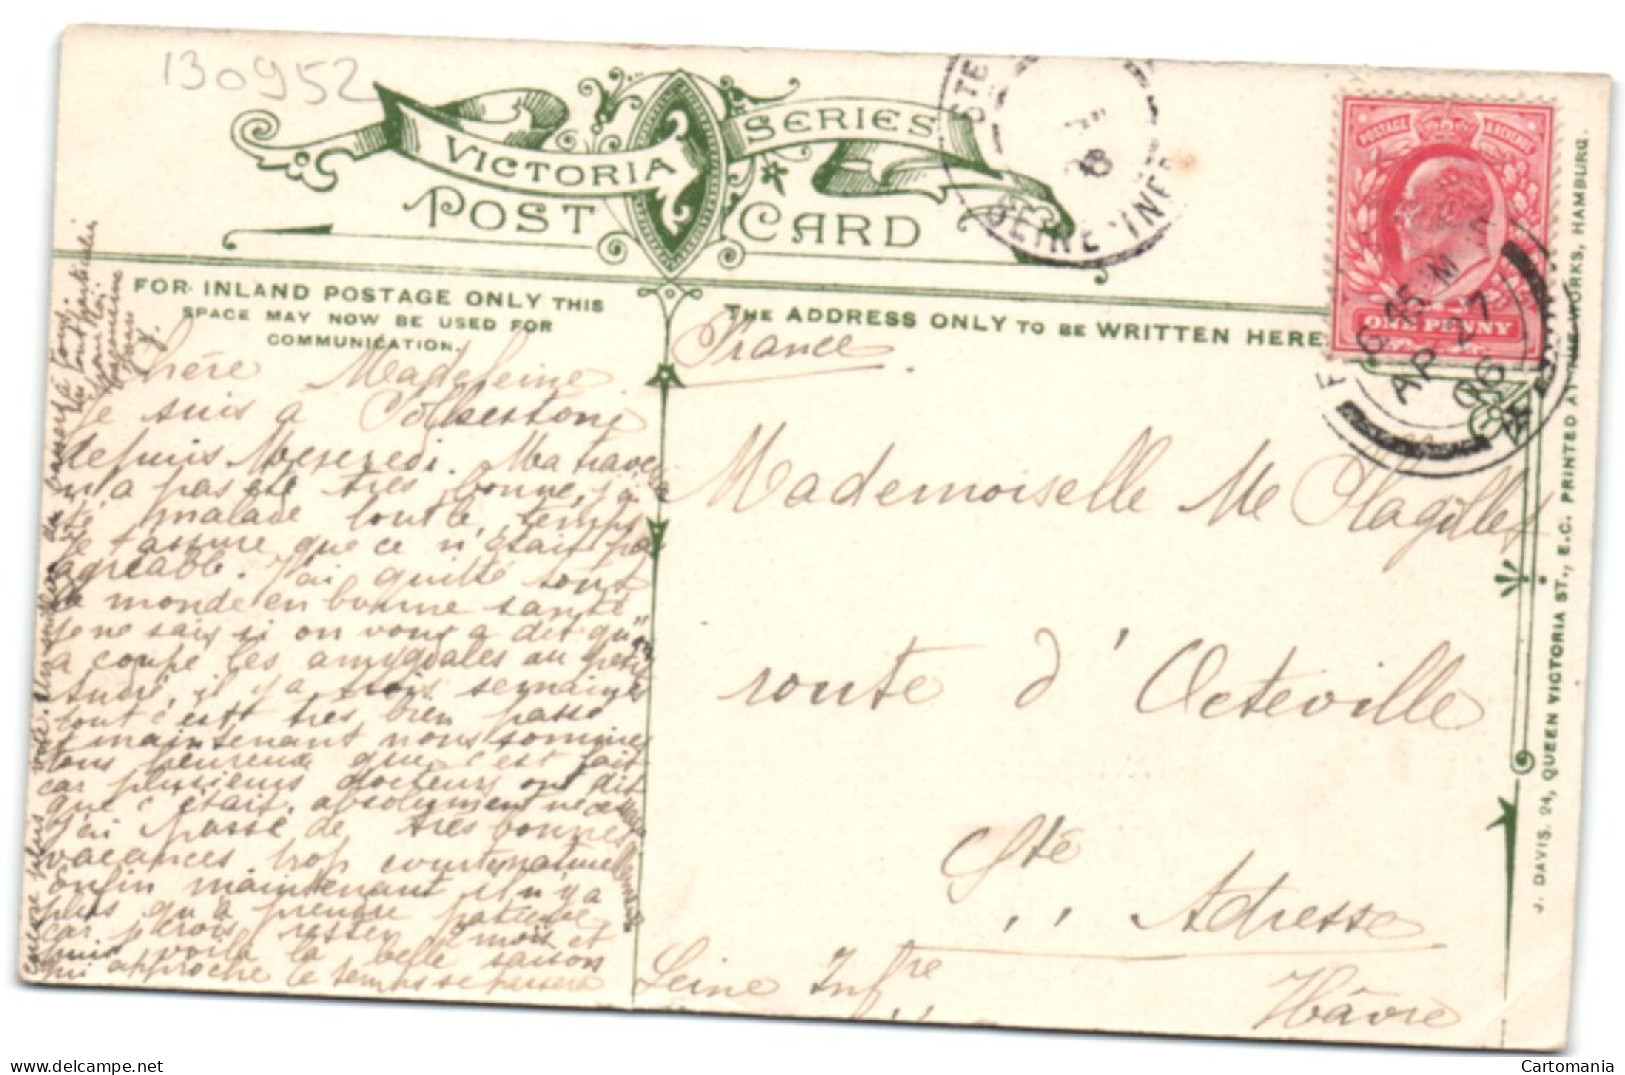 130952
VICTORIA SERIES
POST CARD
STE
SEINE INF
FOR INLAND POSTAGE ONLY THIS
SPACE MAY NOW BE USED FOR
COMMUNICATION.
THE ADDRESS ONLY TO BE WRITTEN HERE
POSTAGE & REVENUE
ONE PENNY
AP 27
06
France
Mademoiselle Me
route d'Octeville
Ste Adresse
Seine Infre
Hâvre
Chère Madeleine
Je suis à Folkestone
depuis Mercredi. Ma traver
n'a pas été très bonne, j'ai
été malade tout le temps
je t'assure que ce n'était pas
agréable. J'ai quitté tout
le monde en bonne santé
Je ne sais si on vous a dit qu'
a coupé les amygdales au petit
André, il y a trois semaines
tout c'est très bien passé
et maintenant nous sommes
tous heureux que c'est fait
car plusieurs docteurs ont dit
que c'était absolument néces
J'ai passé de très bonnes
vacances trop courtes naturellement
enfin maintenant il n'y a
plus qu'à prendre patience
car je vois rester mois et
puis voilà la belle saison
qui approche le temps se passera
encore plus vite. Un millier de baisers à tous,
un tout particulier
pour toi
J. DAVIS. 24, QUEEN VICTORIA ST., E.C. PRINTED AT THE WORKS, HAMBURG.
Cartomania